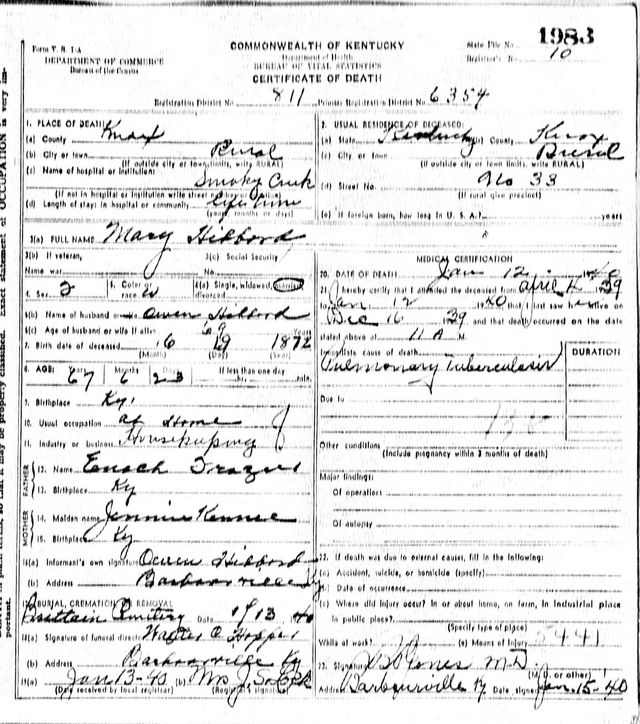 1983
Form V. S. 1-A
DEPARTMENT OF COMMERCE
Bureau of the Census
COMMONWEALTH OF KENTUCKY
Department of Health
BUREAU OF VITAL STATISTICS
CERTIFICATE OF DEATH
State File No.
Registrar's No. 10
Registration District No. 811 Primary Registration District No. 6354
1. PLACE OF DEATH
(a) County Knox
(b) City or town Rural
(If outside city or town limits, write RURAL)
(c) Name of hospital or institution:
Smoky Creek
(If not in hospital or institution write street number or location)
(d) Length of stay: In hospital or community Life time
(years, months or days)
2. USUAL RESIDENCE OF DECEASED:
(a) State Kentucky (b) County Knox
(c) City or town Rural
(If outside city or town limits, write RURAL)
(d) Street No. No 33
(If rural give precinct)
(e) If foreign born, how long in U. S. A.? years
3(a) FULL NAME Mary Hibbord
3(b) If veteran,
Name war
3(c) Social Security
No.
4. Sex 2 5. Color or race W 6(a) Single, widowed, married, divorced
6(b) Name of husband or wife Owen Hibbord
6(c) Age of husband or wife if alive 69 years
7. Birth date of deceased 6 19 1872
(Month) (Day) (Year)
8. AGE: Years Months Days If less than one day
67 6 23 min.
9. Birthplace Ky.
10. Usual occupation at Home
11. Industry or business Housekeeping
FATHER
12. Name Enoch
13. Birthplace Ky
MOTHER
14. Maiden name Jennie
15. Birthplace Ky
16(a) Informant's own signature Owen Hibbord
(b) Address Barbourville Ky
17 BURIAL, CREMATION OR REMOVAL
Brittain Cemetery Date 1/13 40
18(a) Signature of funeral director Walter C Hopper
(b) Address Barbourville Ky
19(a) Jan 13-40 (b) Mrs J.
(Date received by local registrar) (Registrar's signature)
MEDICAL CERTIFICATION
20. DATE OF DEATH Jan 12 1940
21. I hereby certify that I attended the deceased from April 2 1939
to Jan 12 1940 that I last saw her alive on
Dec 16 1939 and that death occurred on the date
stated above at 11 A M
Immediate cause of death
DURATION
Pulmonary Tuberculosis
Due to
Other conditions
(Include pregnancy within 3 months of death)
Major findings:
Of operations
Of autopsy
22. If death was due to external causes, fill in the following:
(a) Accident, suicide, or homicide (specify)
(b) Date of occurrence
(c) Where did injury occur? In or about home, on farm, in industrial place
in public place?
(Specify type of place)
While at work? (e) Means of Injury 5441
23. Signature Jones M.D.
(M. D. or other)
Address Barbourville Ky Date signed Jan. 15-40